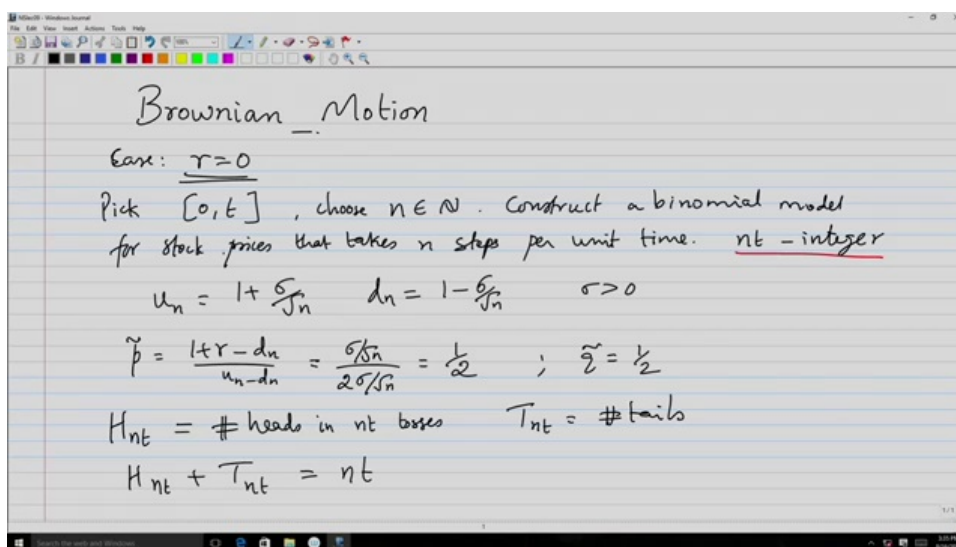 NSlec18 - Windows Journal
File Edit View Insert Actions Tools Help
B I
Brownian Motion
Case: r=0
Pick [0,t] , choose n ∈ N . Construct a binomial model
for stock prices that takes n steps per unit time. nt - integer
uₙ = 1+ σ/√n dₙ = 1- σ/√n σ>0
p̃ = (1+r-dₙ)/(uₙ-dₙ) = (σ/√n)/(2σ/√n) = 1/2 ; q̃ = 1/2
Hₙₜ = # heads in nt tosses Tₙₜ = # tails
Hₙₜ + Tₙₜ = nt
1/1
1
Search the web and Windows